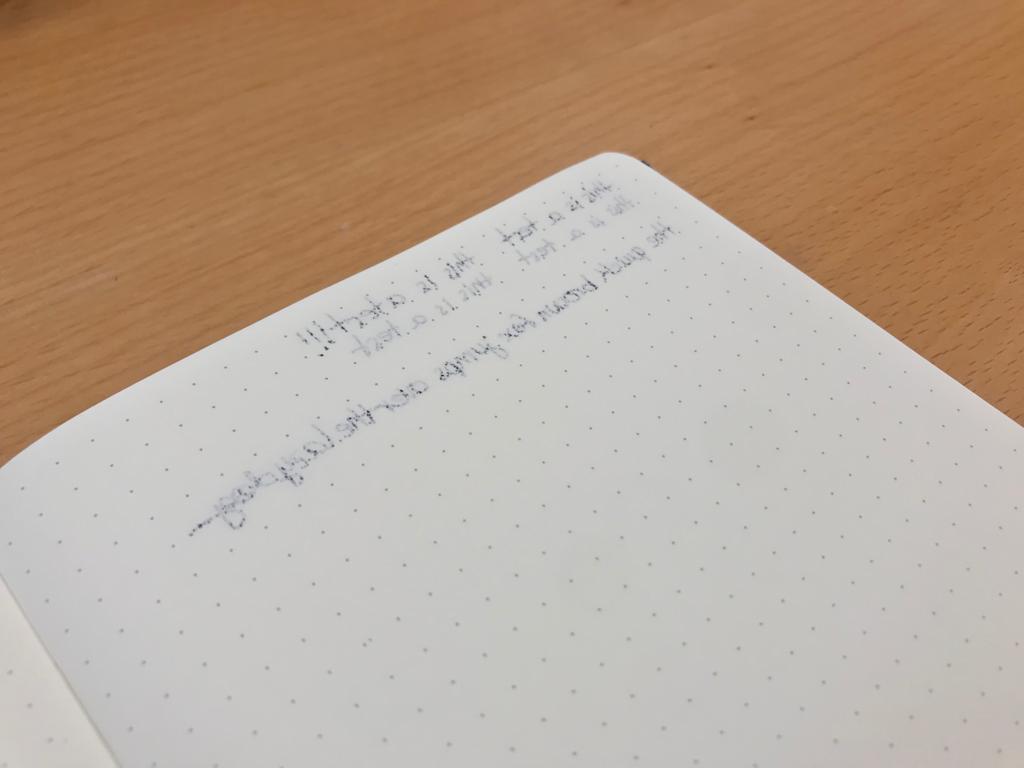 this is a test this is a test!!!
this is a test this is a test
the quick brown fox jumps over the lazy dog